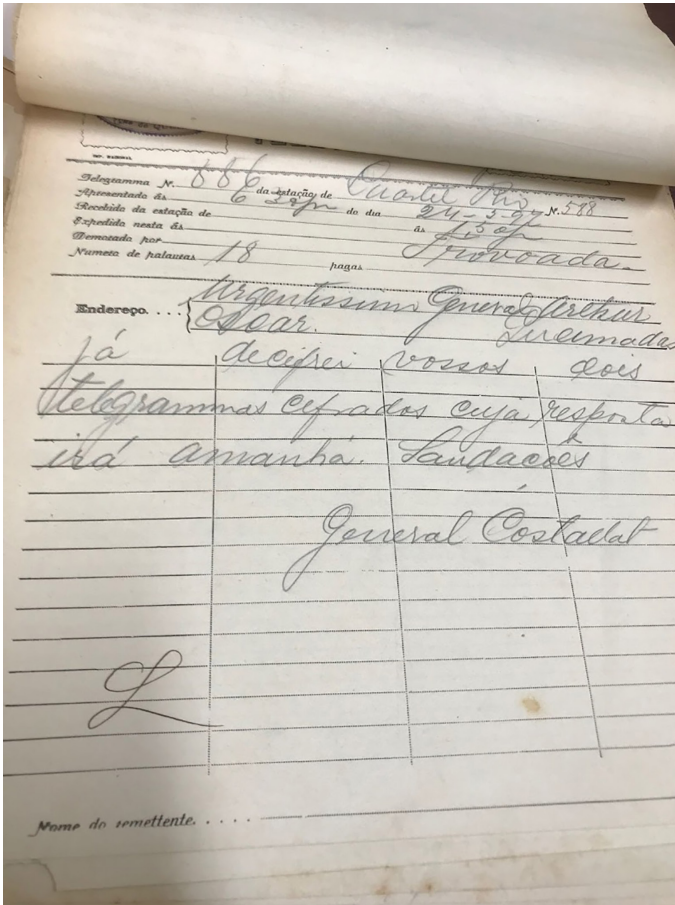 IMP. NACIONAL
Telegramma N. 886 da estação de Quartel Rio N. 588
Apresentado ás 6 do dia 24-5-97
Recebido da estação de ás
Expedido nesta ás
Demorado por Trovoada
Numero de palauras 18 pagas
Endereço.... Urgentissimo General Arthur
Oscar. Queimadas
já decifrei vossos dois
telegrammas cifrados cuja resposta
irá amanhã. Saudacões
General Costallat
Nome do remettente.....